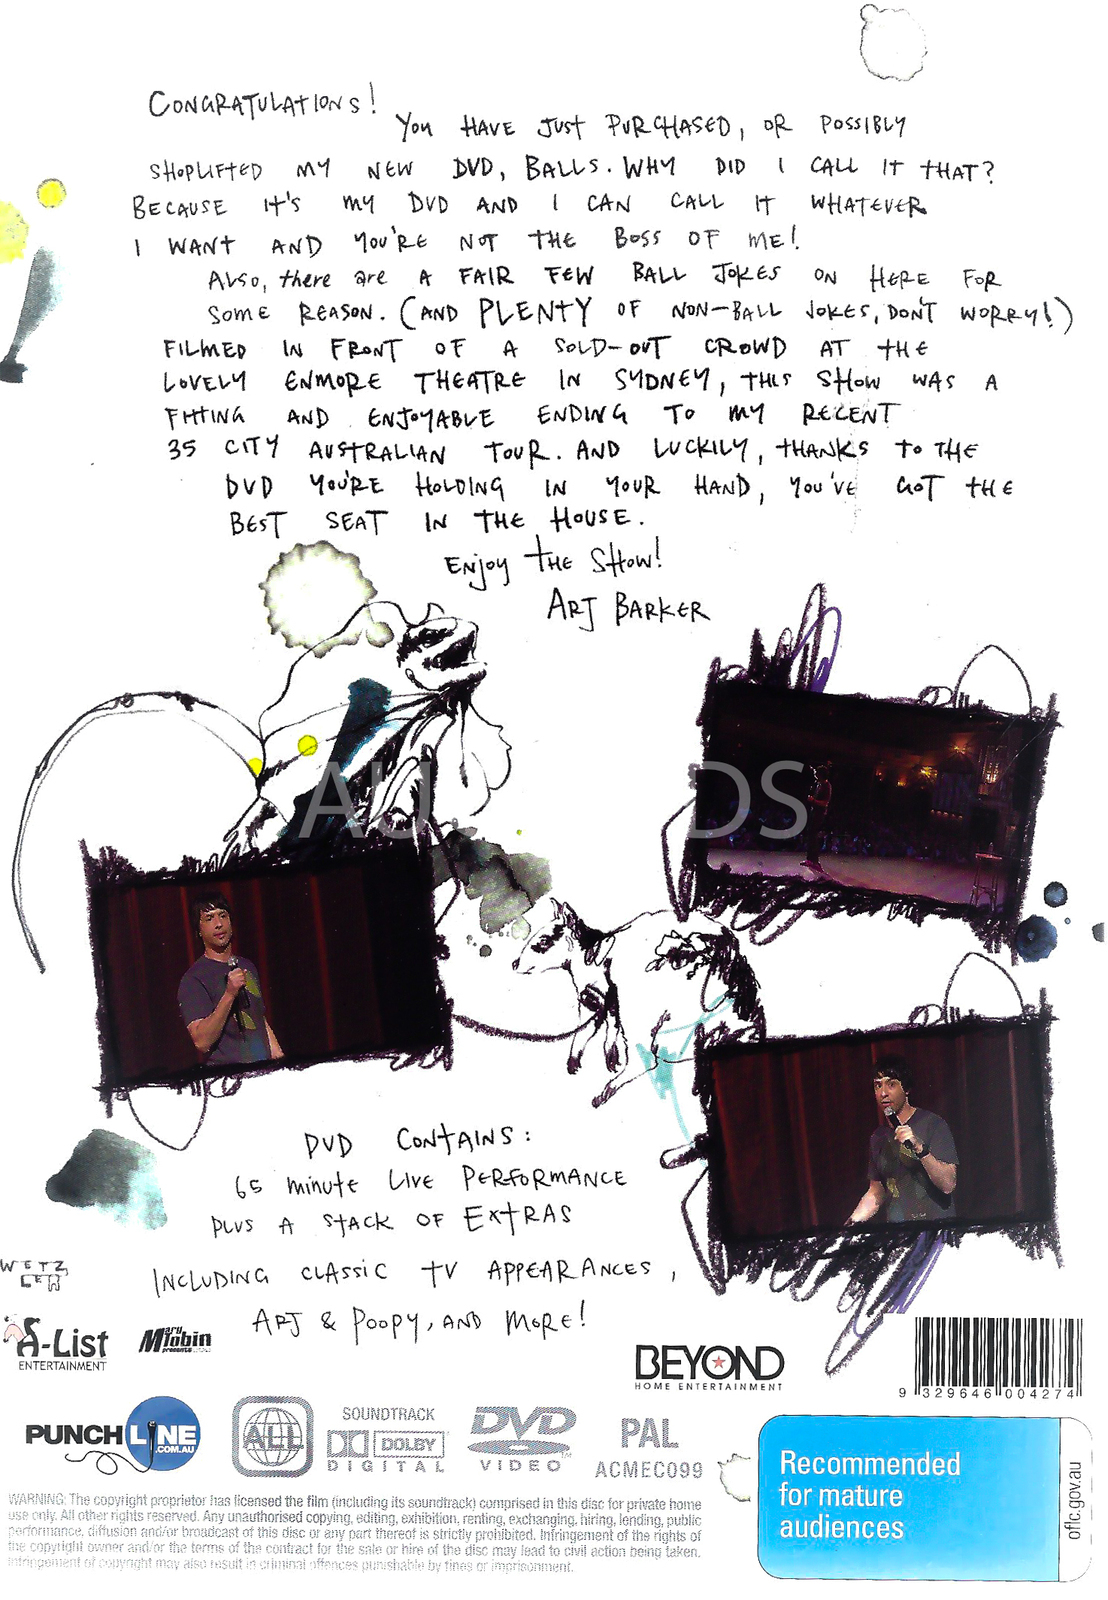 CONGRATULATIONS!
YOU HAVE JUST PURCHASED, OR POSSIBLY
SHOPLIFTED MY NEW DVD, BALLS. WHY DID I CALL IT THAT?
BECAUSE IT'S MY DVD AND I CAN CALL IT WHATEVER
I WANT AND YOU'RE NOT THE BOSS OF ME!
ALSO, there are A FAIR FEW BALL JOKES ON HERE FOR
SOME REASON. (AND PLENTY OF NON-BALL JOKES, DON'T WORRY!)
FILMED IN FRONT OF A SOLD-OUT CROWD AT THE
LOVELY ENMORE THEATRE IN SYDNEY, THIS SHOW WAS A
FITTING AND ENJOYABLE ENDING TO MY RECENT
35 CITY AUSTRALIAN TOUR. AND LUCKILY, THANKS TO THE
DVD YOU'RE HOLDING IN YOUR HAND, YOU'VE GOT THE
BEST SEAT IN THE HOUSE.
ENJOY THE SHOW!
ARJ BARKER
AU DS
DVD CONTAINS:
65 minute LIVE PERFORMANCE
PLUS A STACK OF EXTRAS
INCLUDING CLASSIC TV APPEARANCES,
ARJ & POOPY, AND MORE!
WETZ
LER
A-List
ENTERTAINMENT
Mary Tobin
presents
BEYOND
HOME ENTERTAINMENT
9 329646 004274
PUNCHLINE
.COM.AU
ALL
SOUNDTRACK
DOLBY
DIGITAL
DVD
VIDEO
TM
PAL
ACMEC099
Recommended
for mature
audiences
oflc.gov.au
WARNING: The copyright proprietor has licensed the film (including its soundtrack) comprised in this disc for private home
use only. All other rights reserved. Any unauthorised copying, editing, exhibition, renting, exchanging, hiring, lending, public
performance, diffusion and/or broadcast of this disc or any part thereof is strictly prohibited. Infringement of the rights of
the copyright owner and/or the terms of the contract for the sale or hire of the disc may lead to civil action being taken.
Infringement of copyright may also result in criminal offences punishable by fines or imprisonment.